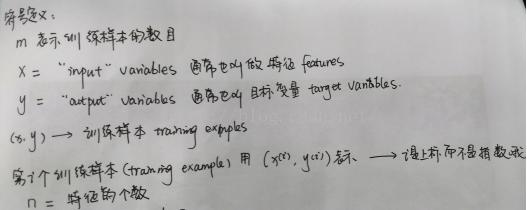 符号定义:
m 表示训练样本的数目
X = "input" variables 通常也叫做特征 features
y = "output" variables 通常也叫目标变量 target variables.
(x, y) → 训练样本 training examples
第i个训练样本 (training example) 用 (x⁽ⁱ⁾, y⁽ⁱ⁾) 表示 → 是上标而不是指数哦
n = 特征的个数